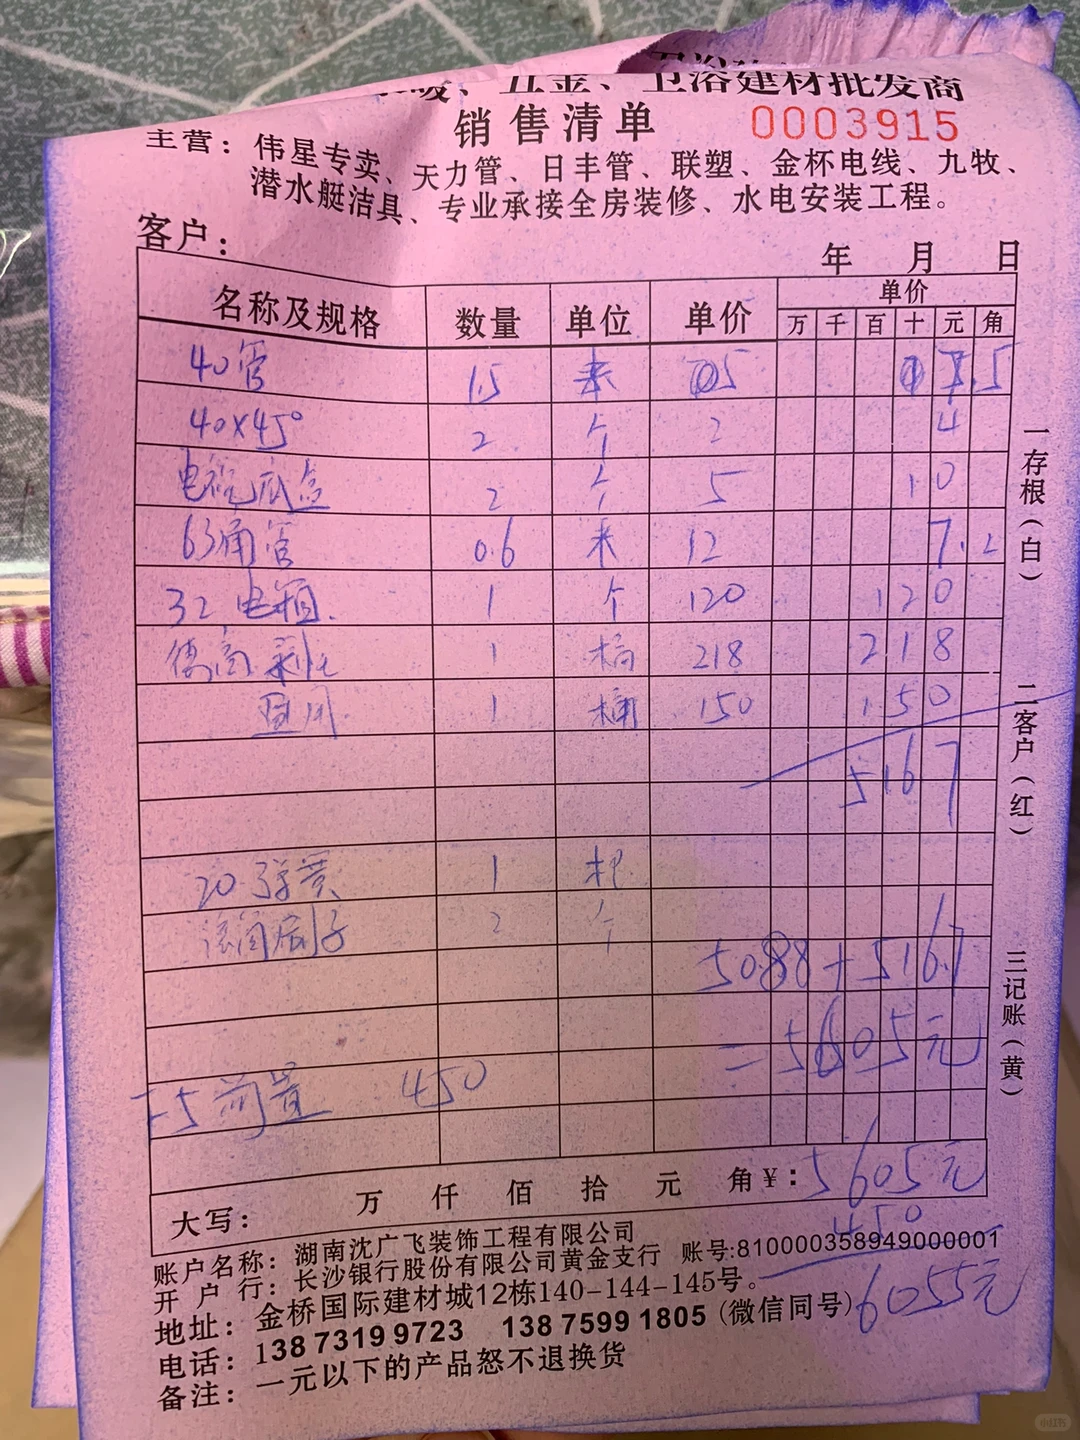 暖、五金、卫浴建材批发商
销售清单 0003915
主营：伟星专卖、天力管、日丰管、联塑、金杯电线、九牧、
潜水艇洁具、专业承接全房装修、水电安装工程。
客户：
年 月 日
名称及规格 数量 单位 单价 单价
万 千 百 十 元 角
40管 1.5 米 5 7.5
40×45° 2 个 2 4
电视底盒 2 个 5 10
63通管 0.6 米 12 7.2
32电箱. 1 个 120 120
德高 1 桶 218 218
1 桶 150 150
5167
20弹簧 1 根
滚筒刷子 2 个
5088+516.7
=5605元
前置 450
大写： 万 仟 佰 拾 元 角 ¥：5605元
450
6055元
账户名称：湖南沈广飞装饰工程有限公司
开户行：长沙银行股份有限公司黄金支行 账号:810000358949000001
地址：金桥国际建材城12栋140-144-145号。
电话：138 7319 9723 138 7599 1805 (微信同号)
备注：一元以下的产品怒不退换货
一存根（白）
二客户（红）
三记账（黄）
小红书